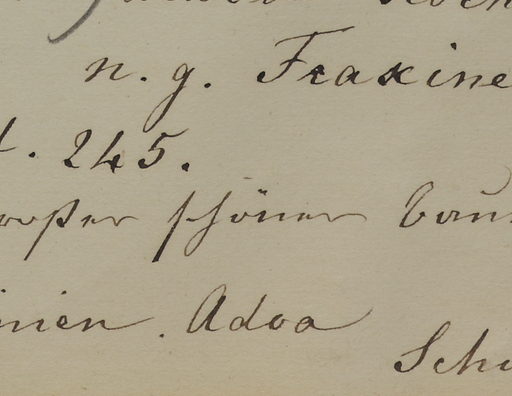 n. g. Fraxine
t. 245.
roßer schöner Baum
inien. Adoa
Schi